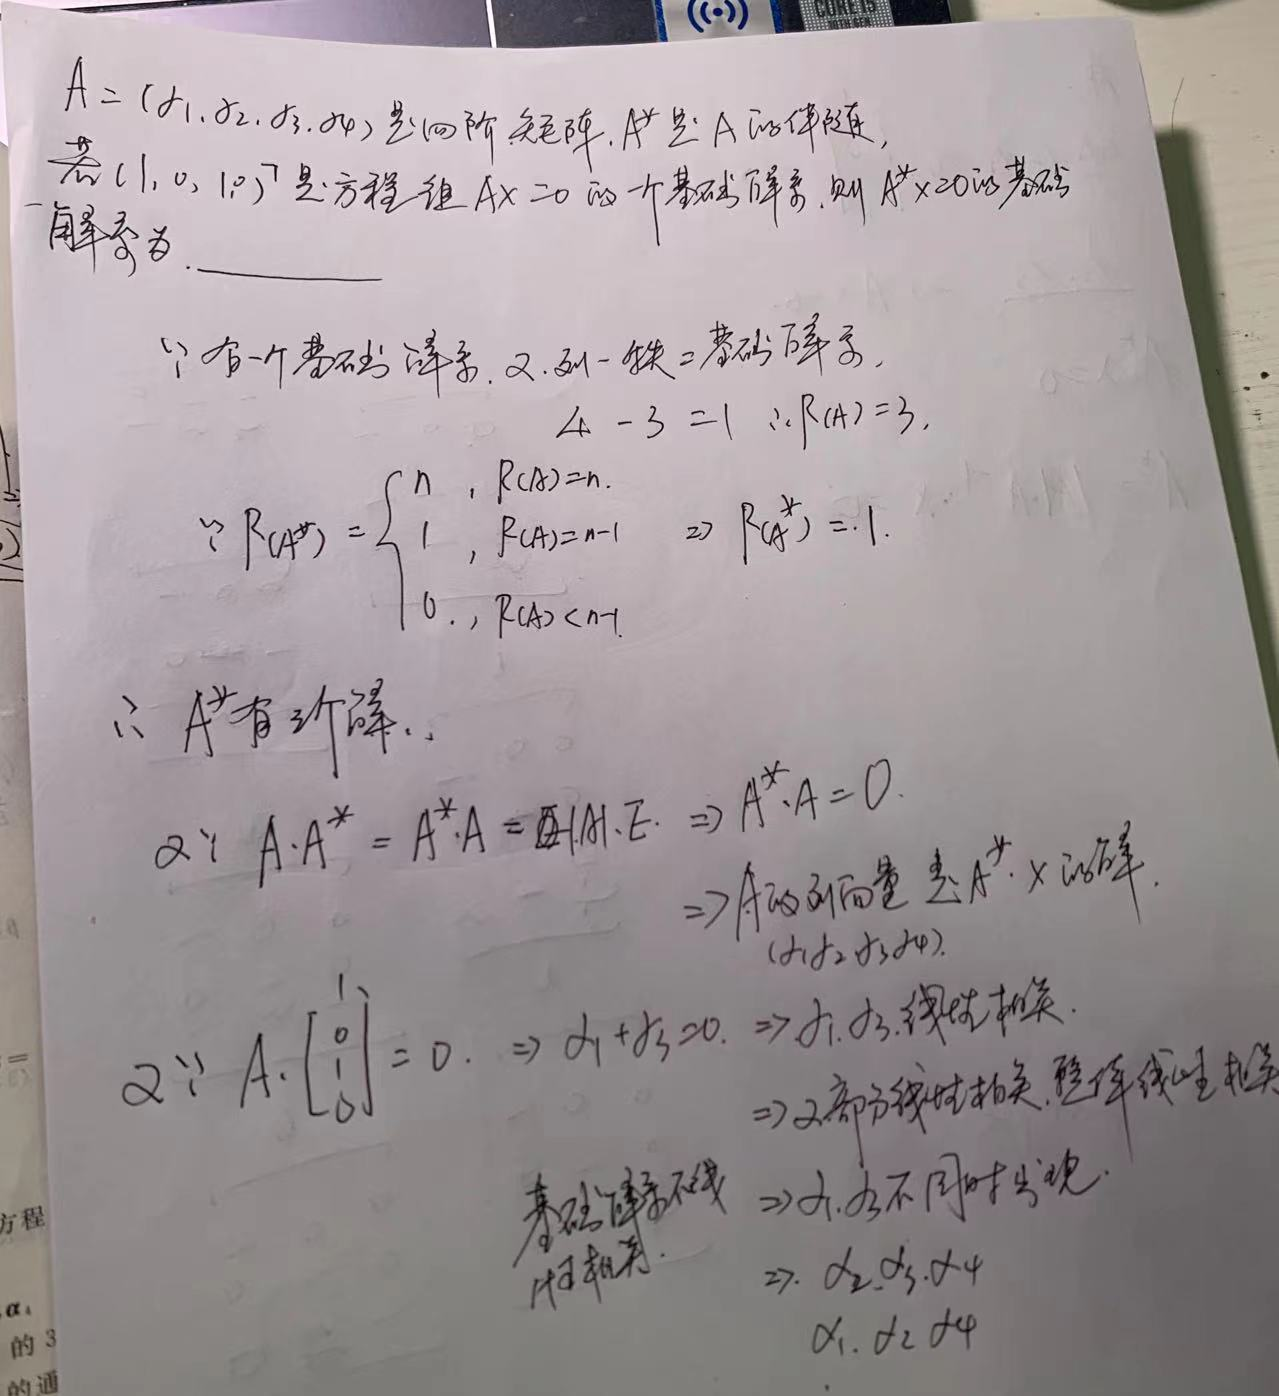 CORE i5
10TH GEN
A=(α1.α2.α3.α4)是四阶矩阵.A*是A的伴随,
若(1,0,1,0)ᵀ是方程组AX=0的一个基础解系.则A*X=0的基础
解系为.________
∵有一个基础解系.又.列-秩=基础解系,
4-3=1 ∴R(A)=3,
∵R(A*)={n , R(A)=n.
1 , R(A)=n-1 ⇒ R(A*)=1.
0 , R(A)<n-1
∴ A*有3个解.
又∵ A·A* = A*·A = |A|·E. ⇒ A*·A=0.
⇒A的列向量是A*·X的解.
(α1α2α3α4).
又∵ A·[1 0 1 0]=0. ⇒ α1+α3=0. ⇒α1.α3.线性相关.
⇒又部分线性相关.整体线性相关
基础解系不线 ⇒α1.α3不同时出现.
性相关. ⇒. α2.α3.α4
α1.α2 α4
方程
α4
的 3
的通